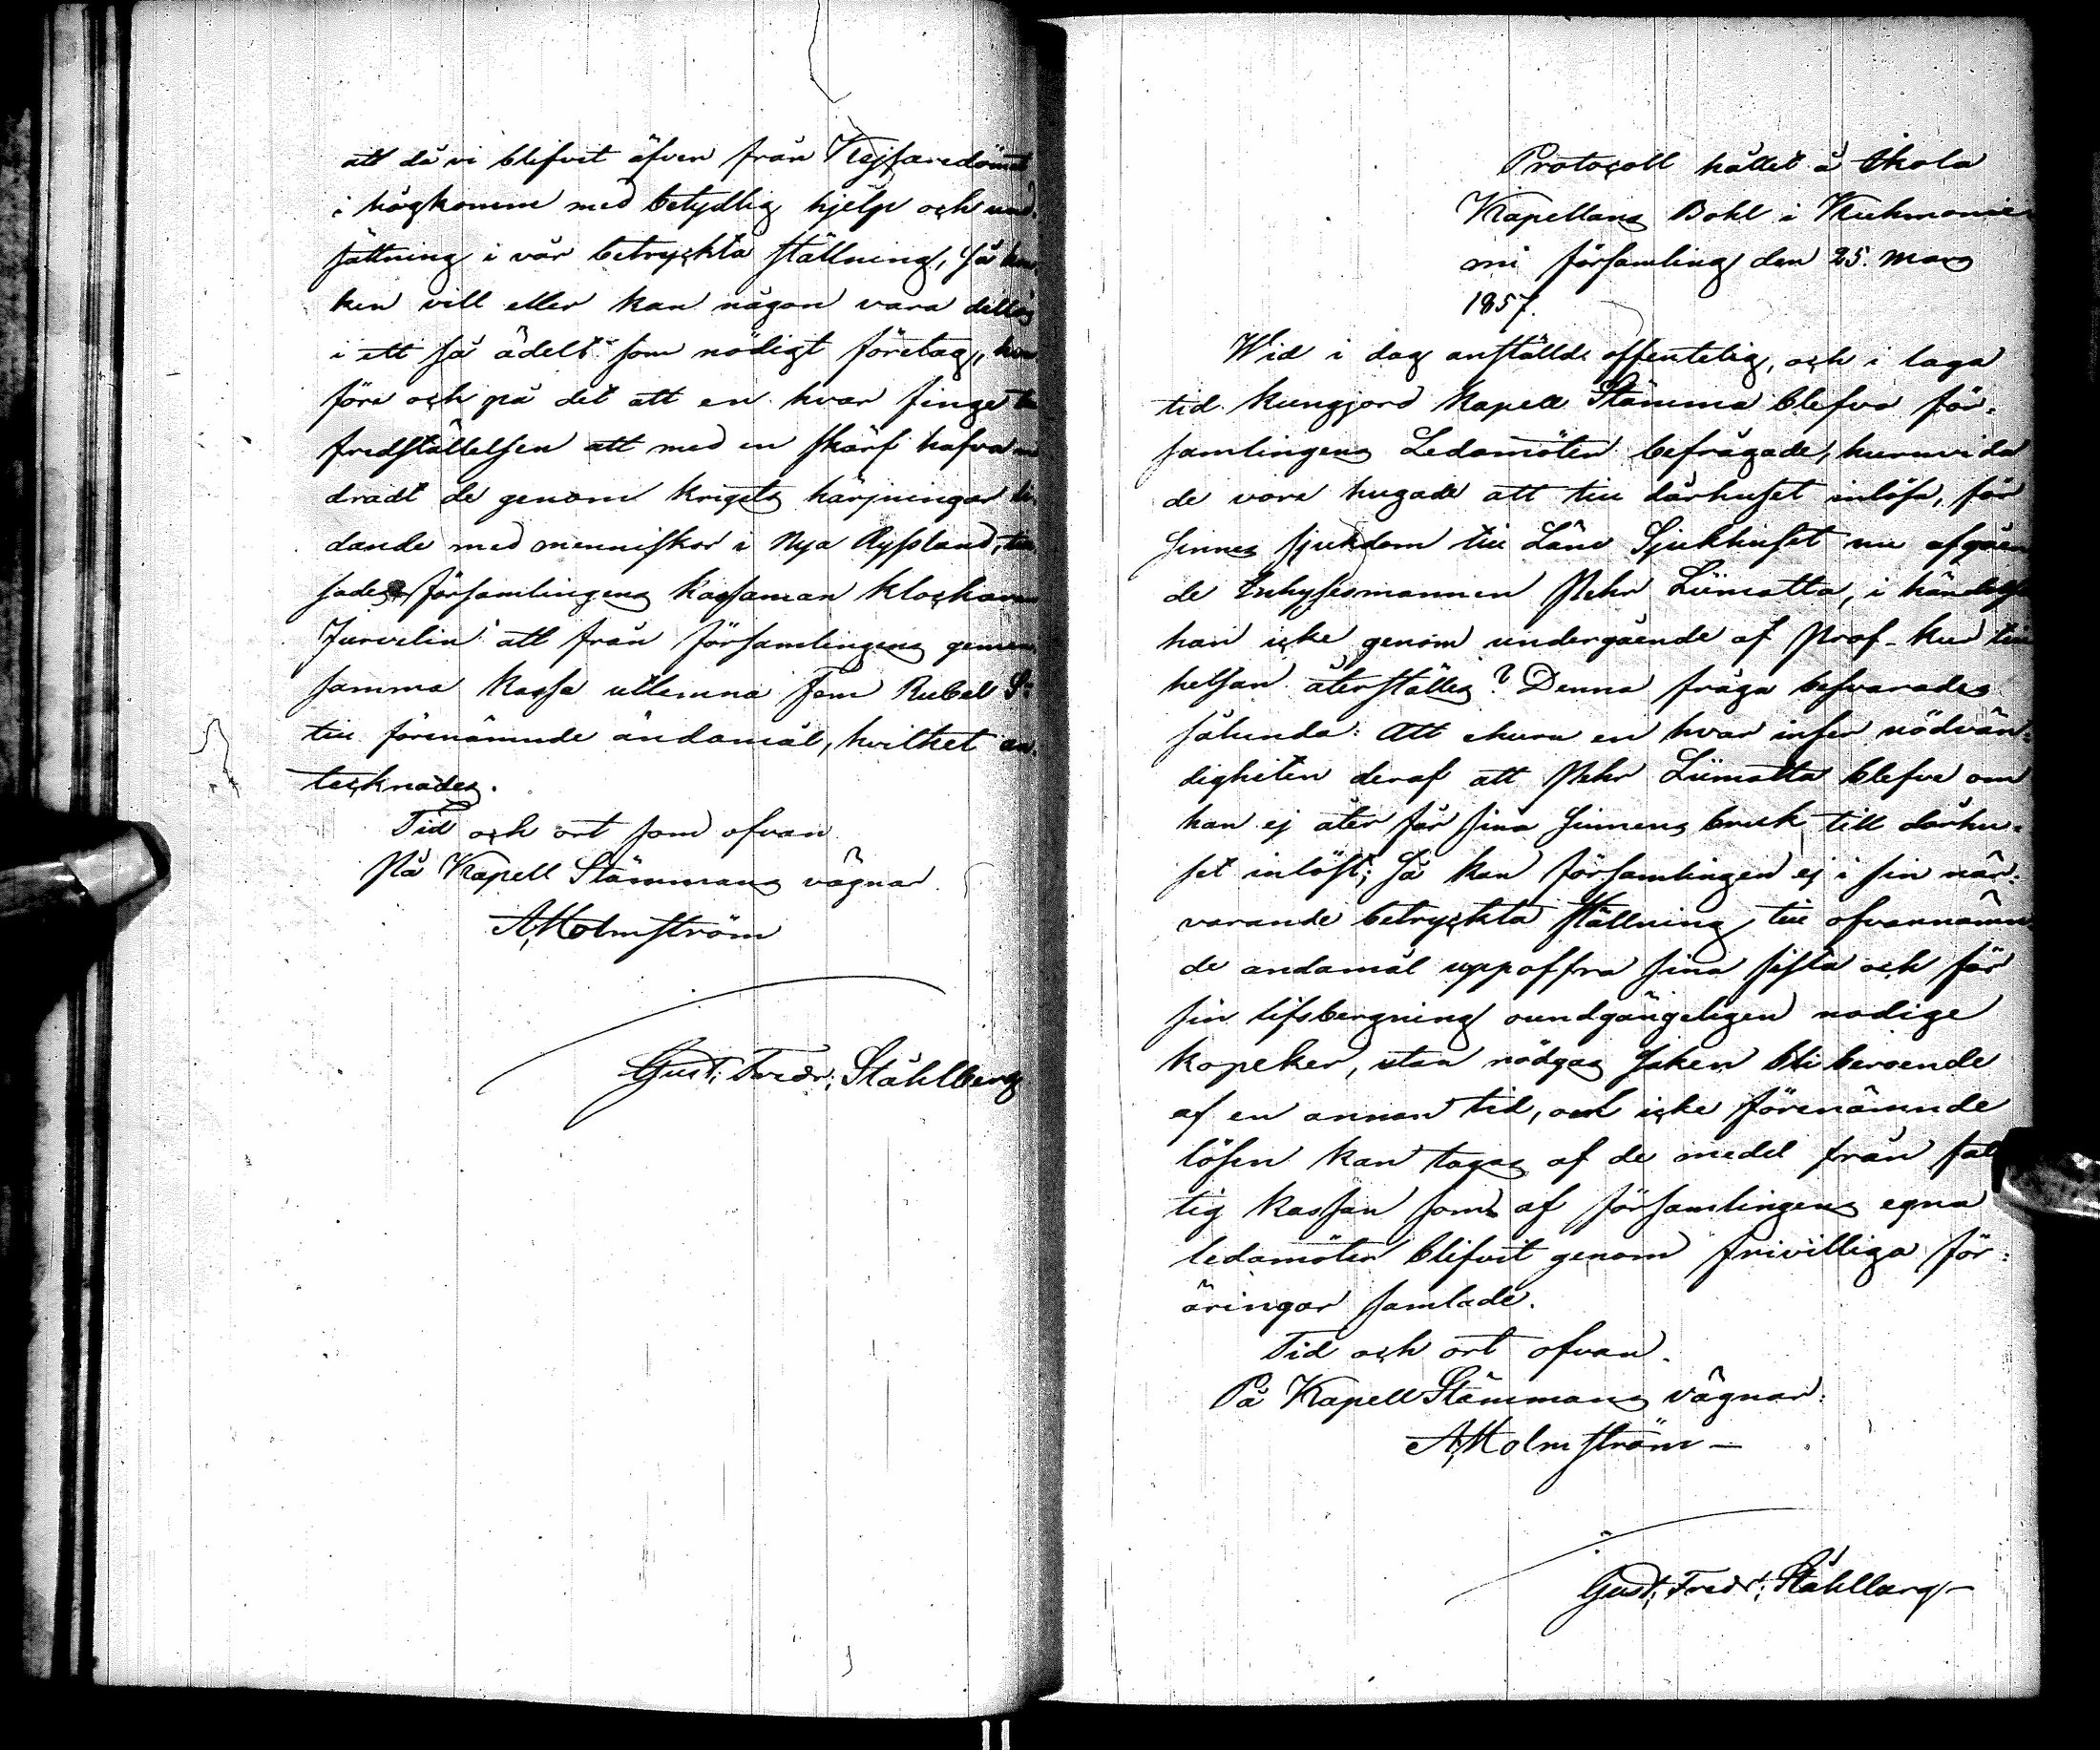 att då vi blifvit äfven från Kejsaredömet
i hogkomme med betydlig hjelp och und-
sättning i vår betryckta ställning, så hvar-
ken vill eller kan någon vara
i ett så ädelt som nödigt företag, hvar
före och på det att en hvar finge
fredställelsen att med en skärf hafva
dradt de genom krigets härjningar li-
dande med menniskor i Nya Ryssland,
sades församlingens kassaman klockaren
Jurvelin att från församlingens gemen-
samma kassa utlemna Fem Rubel Sr
till förenämnde ändamål, hvilket an-
tecknades.
Tid och ort som ofvan
På Kapell Stämmans vägnar
A Holmström
Gust. Fredr. Ståhlberg
Protocoll hållet å Skola
Kapellans Bohl i Kuhmonie-
mi församling den 25. Mars
1857.
Wid i dag anställde offentelig, och i laga
tid kungjord Kapell Stämma blefvo för-
samlingens Ledamöter befrågade, huruvida
de vore hugade att till dårhuset inlösa, för
Sinnes sjukdom till Läns Sjukhuset nu afgåen
de Inhysesmannen Pehr Liimatta, i händelse
han icke genom undergående af Prof-kur till
helsan återställes? Denna fråga besvarades
sålunda: Att ehuru en hvar inser nödvän-
digheten deraf att Pehr Liimatta blefve om
han ej åter får sina Sinnens bruk till dårhu-
set inlöst; så kan församlingen ej i sin när-
varande betryckta ställning till ofvannämn
de andamål uppoffra sina sista och för
sin lifsbergning oundgängeligen nodige
kopeker, utan nödgas saken bli beroende
af en annan tid, om icke förenämnde
lösen kan tagas af de medel från fat
tig kassan som af församlingens egna
ledamöter blifvit genom frivilliga för-
äringar samlade.
Tid och ort ofvan.
På Kapell Stämmans vägnar:
A Holmström
Gust. Fredr. Ståhlberg